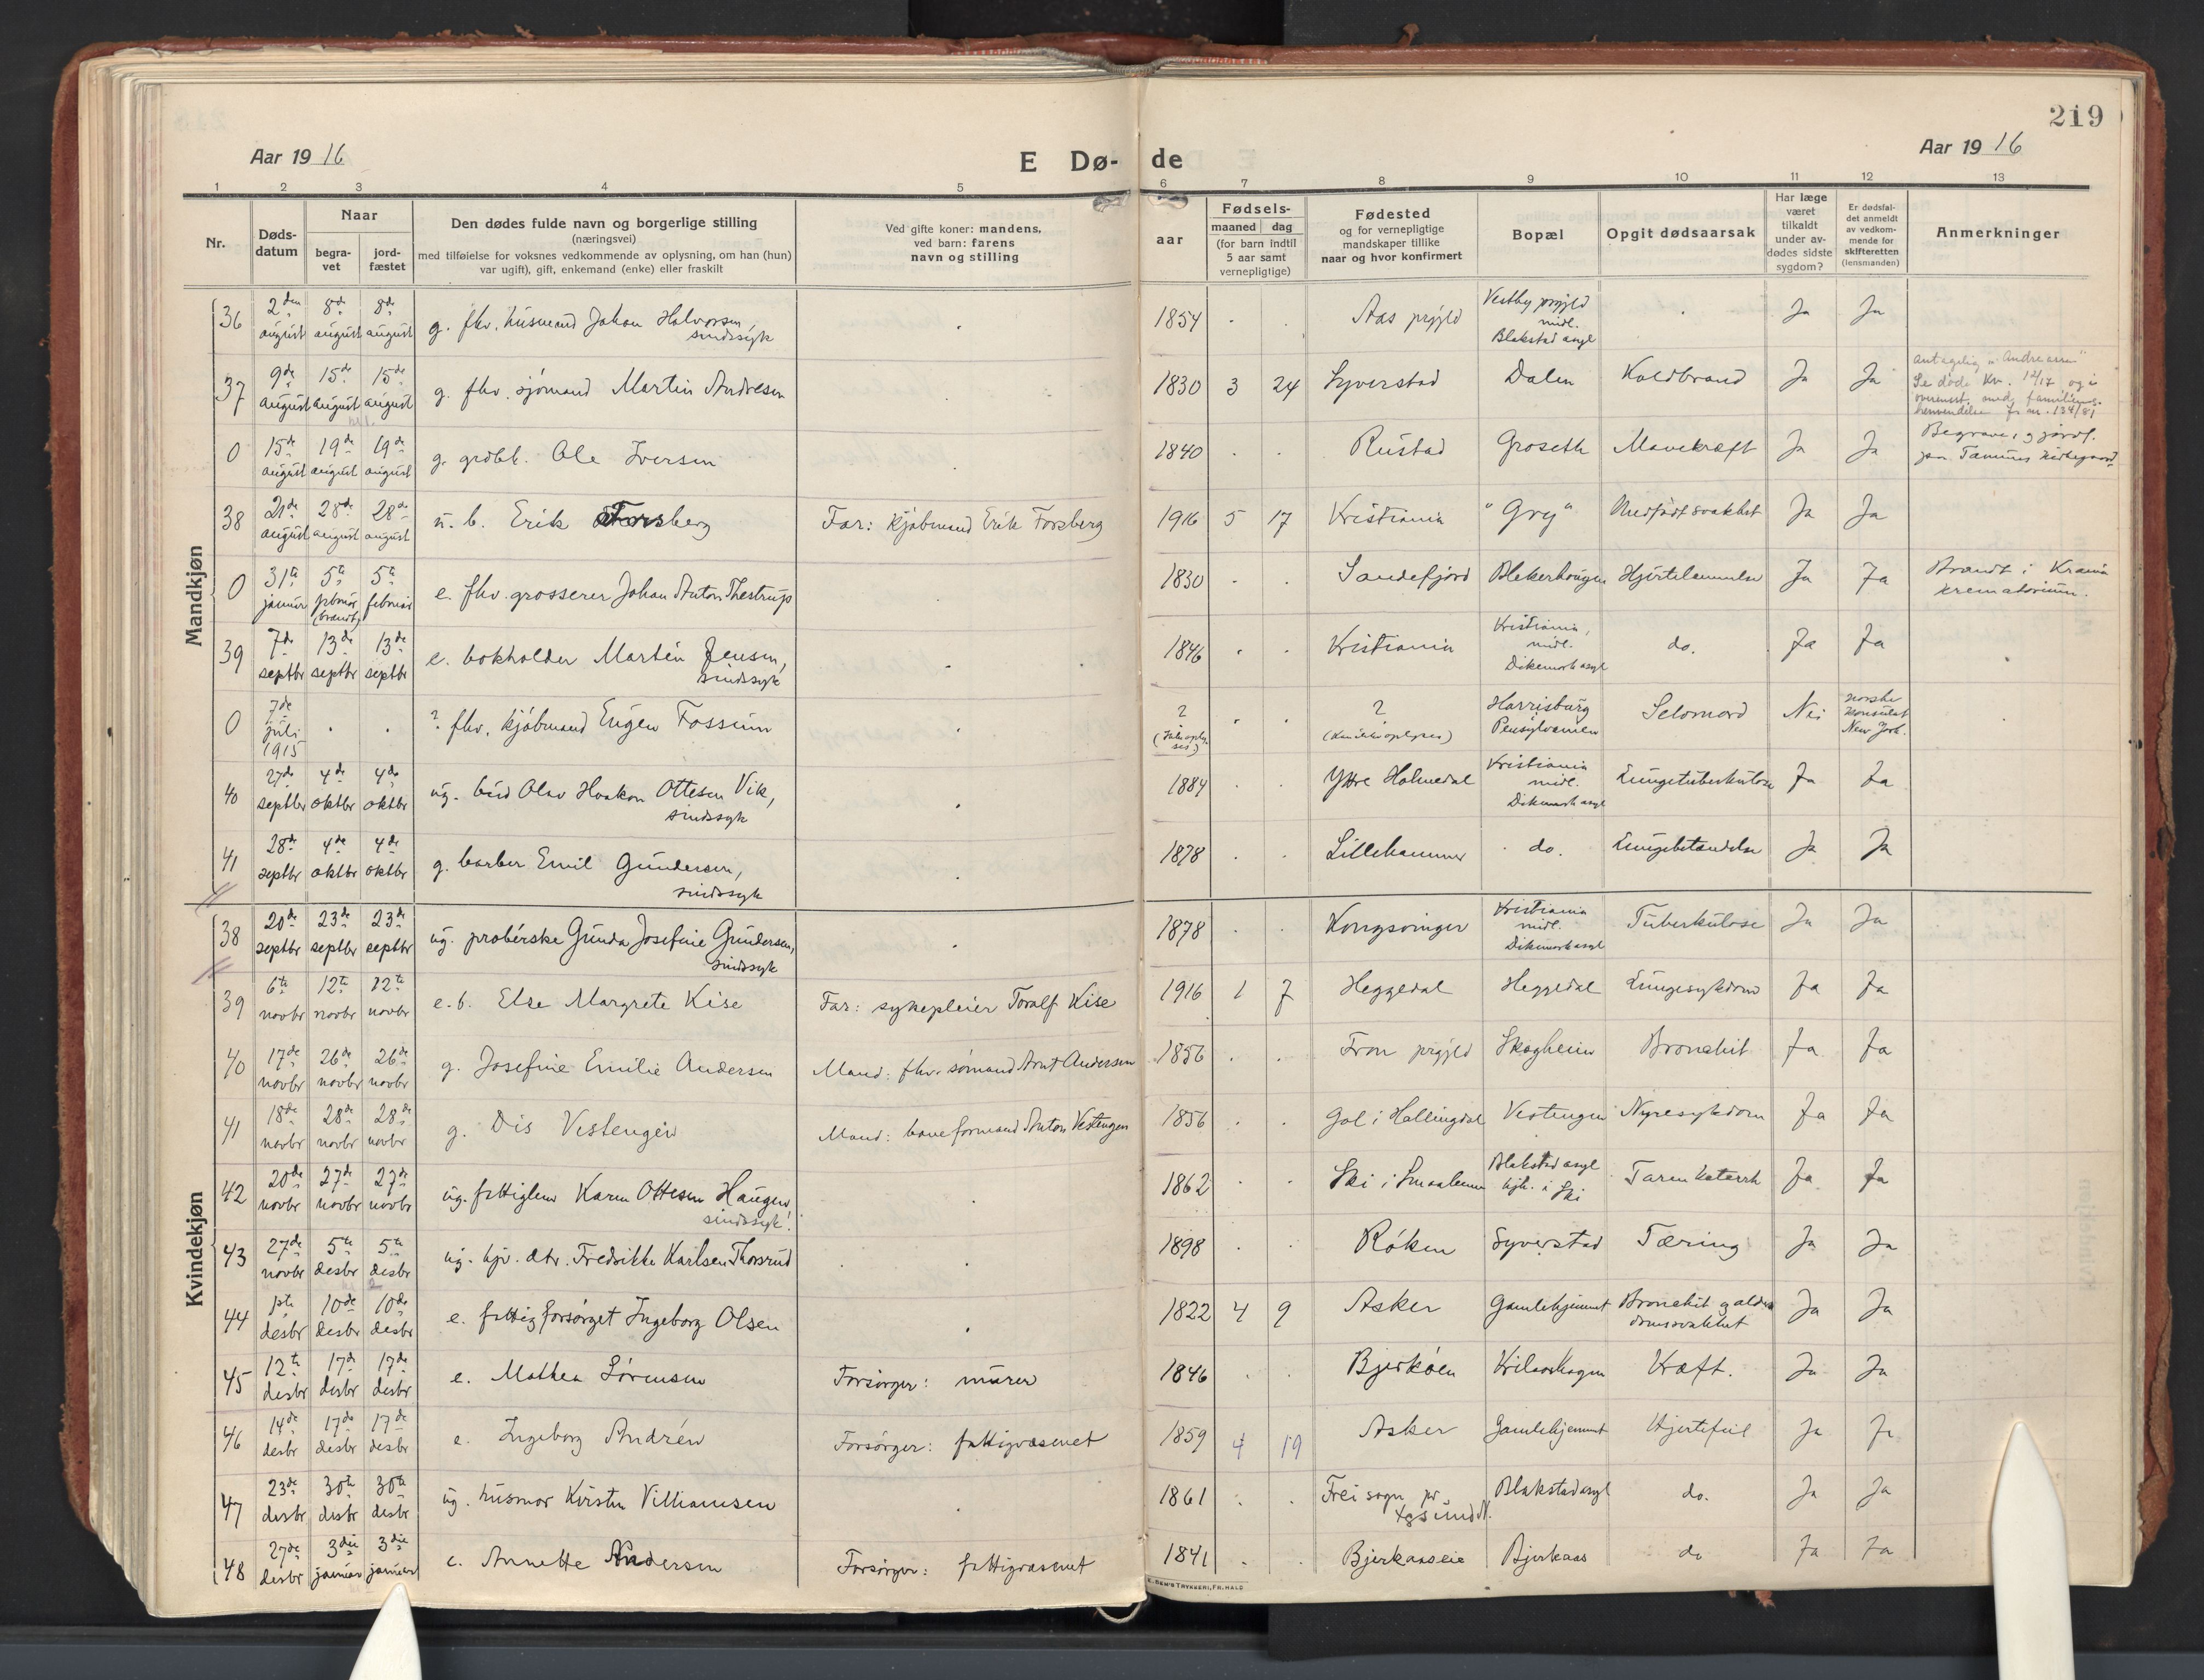 219
Aar 1916
E Dø-
de
Aar 1916
1 2 3 4 5 6 7 8 9 10 11 12 13
Nr.
Døds-
datum
Naar
begra-
vet
jord-
fæstet
Den dødes fulde navn og borgerlige stilling
(næringsvei)
med tilføielse for voksnes vedkommende av oplysning, om han (hun)
var ugift), gift, enkemand (enke) eller fraskilt
Ved gifte koner: mandens,
ved barn: farens
navn og stilling
aar
Fødsels-
maaned dag
(for barn indtil
5 aar samt
vernepligtige)
Fødested
og for vernepligtige
mandskaper tillike
naar og hvor konfirmert
Bopæl
Opgit dødsaarsak
Har læge
været
tilkaldt
under av-
dødes sidste
sygdom?
Er dødsfal-
det anmeldt
av vedkom-
mende for
skifteretten
(lensmanden)
Anmerkninger
Mandkjøn
36 2den august 8de august 8de august g. fhv. husmand Johan Halvorsen, sindssyk . 1854 . . Aas prgjld Vestby prgjld midl. Blakstad asyl . Ja Ja
37 9de august 15de august 15de august g. fhv. sjømand Martin Andresen 1830 3 24 Syverstad Dalen Koldbrand Ja Ja Antagelig "Andreassen" Se døde Kv. 12/17, og i overenst. med familiens henvendelse jr. nr. 134/81
0 15de august 19de august 19de august g. grdbr. Ole Iversen 1840 . . Rustad Groseth Mavekræft Ja Ja Begravet og jordf. paa Tanums kirkegaard
38 21de august 28de august 28de august u. b. Erik Forsberg Far: Kjøbmand Erik Forsberg 1916 5 17 Kristiania "Gry" Medfødt svakhet Ja Ja
0 31te januar 5te februar (brændt) 5te februar e. fhv. grosserer Johan Anton Thestrup 1830 . . Sandefjord Blekerhaugen Hjertelammelse Ja Ja Brændt i Kr.ania krematorium.
39 7de septbr 13de septbr 13de septbr e. bokholder Martin Jensen, sindssyk . 1846 . . Kristiania Kristiania, midl. Dikemark asyl do. Ja Ja
0 7de juli 1915 . . ? fhv. kjøbmand Eugen Fossum . ? . . ? Harrisburg Pensylvanien Selvmord Nei Norske Konsulat New York. .
40 27de septbr 4de oktbr 4de oktbr ug. bud Olav Haakon Ottesen Vik, sindssyk . 1884 . . Ytre Holmedal Kristiania midl. Dikemark asyl Lungetuberkulose Ja Ja
41 28de septbr 4de oktbr 4de oktbr g. barber Emil Gundersen, sindssyk . 1878 . . Lillehammer do. Lungebetændelse Ja Ja
Kvindekjøn
38 20de septbr 23de septbr 23de septbr ug. probérske Gunda Josefine Gundersen, sindssyk . 1878 . . Kongsvinger Kristiania midl. Dikemark asyl Tuberkulose Ja Ja
39 6te novbr 12te novbr 12te novbr e. b. Else Margrete Kise Far: sykepleier Toralf Kise 1916 1 7 Heggedal Heggedal Lungesykdom Ja Ja
40 17de novbr 26de novbr 26de novbr g. Josefine Emilie Andersen Mand: fhv. sømand Arnt Andersen 1856 . . Fron prgjld Skogheim Bronchit Ja Ja
41 18de novbr 28de novbr 28de novbr g. Dis Vestengen Mand: baneformand Anton Vestengen 1856 . . Gol i Hallingdal Vestengen Nyresykdom Ja Ja
42 20de novbr 27de novbr 27de novbr ug. fattiglem Karen Ottesen Haugen, sindssyk. . 1862 . . Ski i Smaalenene Blakstad asyl hjh. i Ski Tarmkatarrh Ja Ja
43 27de novbr 5te desbr 5te desbr ug. hjv. dtr. Fredrikke Karlsen Thorsrud . . 1898 . . Røken Syverstad Tæring Ja Ja
44 1ste desbr 10de desbr 10de desbr e. fattigforsørget Ingeborg Olsen . 1822 4 9 Asker Gamlehjemmet Bronchit og alderdomssvakhet Ja Ja
45 12te desbr 17de desbr 17de desbr e. Mathea Sørensen Forsørger: murer 1846 . . Bjerkøen Kræft. Ja Ja
46 14de desbr 17de desbr 17de desbr e. Ingeborg Andrén Forsørger: fattigvæsenet 1859 4 19 Asker Gamlehjemmet Hjertefeil Ja Ja
47 23de desbr 30te desbr 30te desbr ug. husmor Kirsten Villiamsen . 1861 . . Frei sogn pr. Kr.sund N. Blakstad asyl do. Ja Ja
48 27de desbr 3die januar 3die januar e. Annette Andersen Forsørger: fattigvæsenet 1841 . . Bjerkaaseie Bjerkaas do Ja Ja
E. SEM'S TRYKKERI, FR.HALD